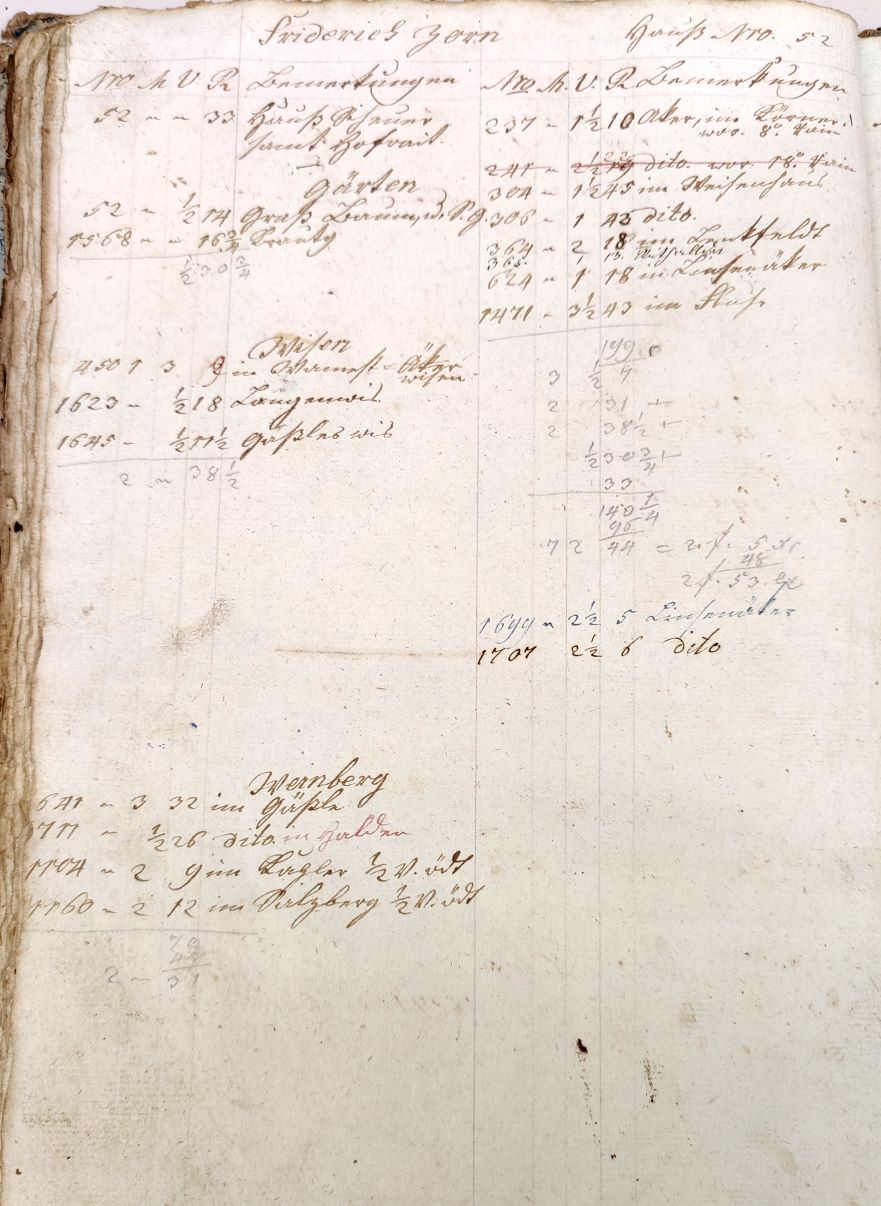 Friderich Zorn
Hauß Nro. 52
Nro M V. R Bemerkungen
52 " " 33 Hauß Scheuer
samt Hofrait.
Gärten
52 " ½ 14 Graß Baum, u. K. g.
1568 " " 16¾ Krautg
½ 30 ¾
Wisen
450 1 3 9 in Wamest = Äker
wisen
1623 " ½ 18 Langenwis
1645 " ½ 11½ Gäßles wis
2 " 38½
Weinberg
641 " 3 32 im Gäßle
711 " ½ 26 dito. in Halden
1104 " 2 9 im Kugler ½ V. ödt
1160 " ½ 12 im Salzberg ½ V. ödt
70
2 " 31
Nro. M. V. R Bemerkungen
237 " 1½ 10 Aker, im Körner
wor. 8° Rain
241 " 2½ 19 dito. wor. 18° Rain
304 " 1½ 45 im Weisenhaus
306 " 1 43 dito.
364 " 2 18 im Lentfeldt
365. 1 13.
624 " 1 18 in Linsenäker
1471 " 3½ 43 im Floh.
199
3 ½ 4
2 31
2 38½
½ 30 ¾
33
140 ¼
96
7 2 44 = 2 f. 5 xr
48
2 f. 53 xr
1699 " 2½ 5 Linsenäker
1707 2½ 6 dito